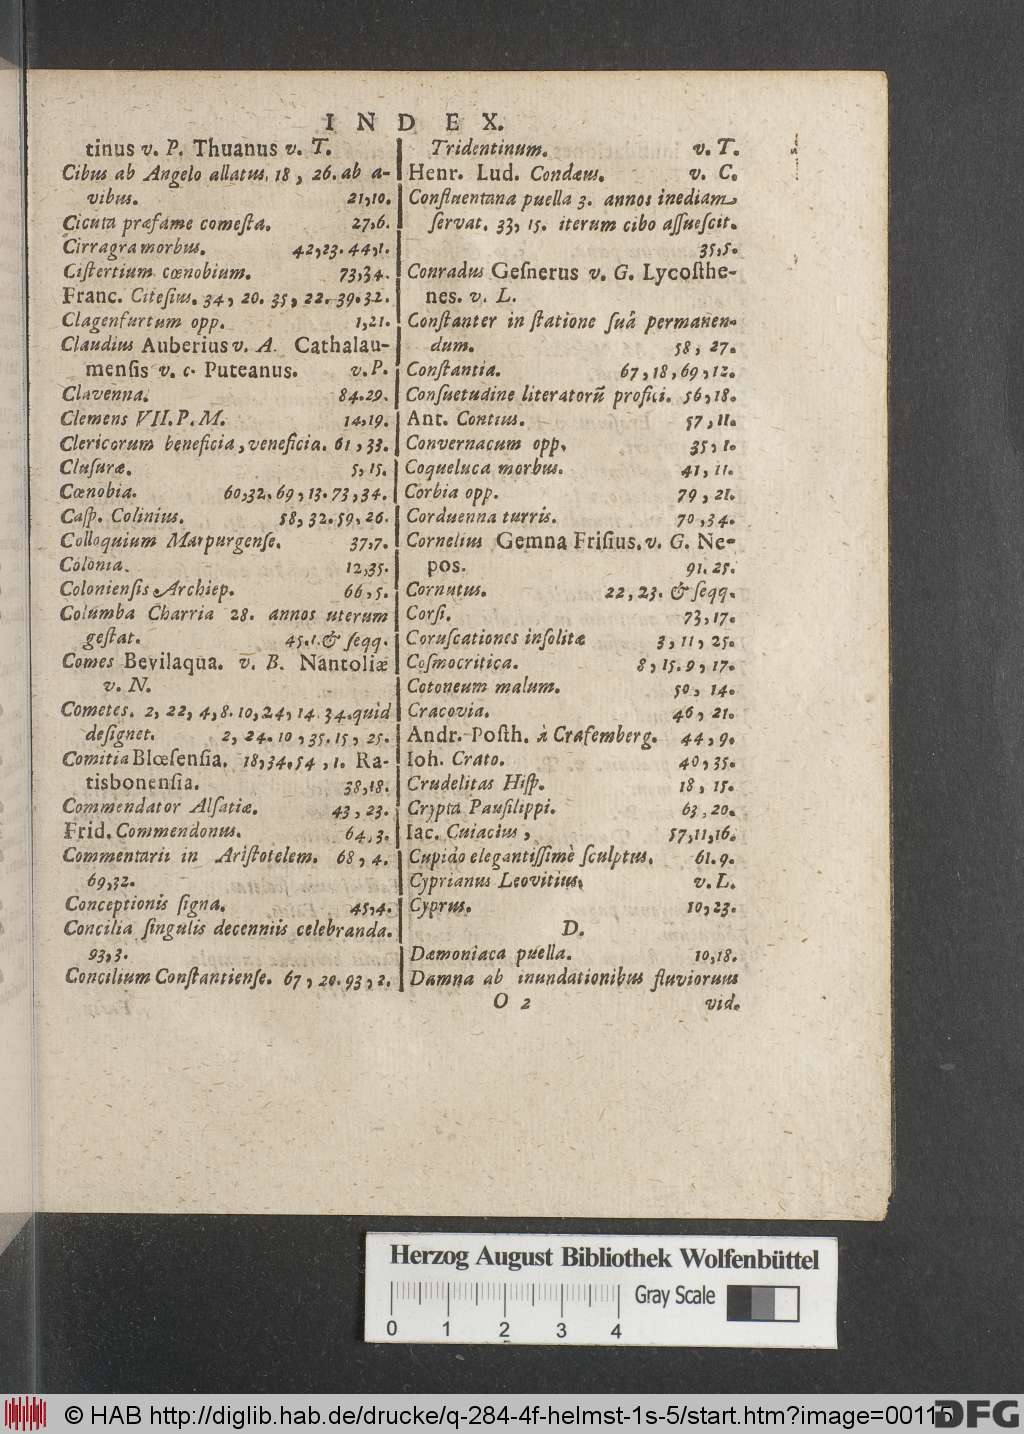 INDEX.
tinus v. P. Thuanus v. T.
Cibus ab Angelo allatus. 18, 26. ab a-
vibus. 21,10.
Cicuta præfame comeſta. 27,6.
Cirragra morbus. 42,23. 44,1.
Ciſtertium cœnobium. 73,34.
Franc. Citeſius. 34, 20. 35, 22. 39.32.
Clagenfurtum opp. 1,21.
Claudius Auberius v. A. Cathalau-
menſis v. c. Puteanus. v. P.
Clavenna. 84.29.
Clemens VII. P. M. 14,19.
Clericorum beneficia, veneficia. 61, 33.
Cluſuræ. 5, 15.
Cœnobia. 60,32. 69, 13. 73, 34.
Caſp. Colinius. 58, 32. 59, 26.
Colloquium Marpurgenſe. 37,7.
Colonia. 12,35.
Colonienſis Archiep. 66, 5.
Columba Charria 28. annos uterum
geſtat. 45.1. & ſeqq.
Comes Bevilaqua. v. B. Nantoliæ
v. N.
Cometes. 2, 22, 4, 8. 10, 24, 14. 34. quid
deſignet. 2, 24. 10, 35. 15, 25.
Comitia Blœſenſia. 18,34. 54, 1. Ra-
tisbonenſia. 38,18.
Commendator Alſatiæ. 43, 23.
Frid. Commendonus. 64, 3.
Commentarii in Ariſtotelem. 68, 4.
69,32.
Conceptionis ſigna. 45,4.
Concilia ſingulis decenniis celebranda.
93,3.
Concilium Conſtantienſe. 67, 20. 93, 2.
Tridentinum. v. T.
Henr. Lud. Condæus. v. C.
Confluentana puella 3. annos inediam
ſervat. 33, 15. iterum cibo aſſueſcit.
35,5.
Conradus Geſnerus v. G. Lycoſthe-
nes. v. L.
Conſtanter in ſtatione ſuâ permanen-
dum. 58, 27.
Conſtantia. 67, 18, 69, 12.
Conſuetudine literatorũ profici. 56, 18.
Ant. Contius. 57, 11.
Convernacum opp. 35, 1.
Coqueluca morbus. 41, 11.
Corbia opp. 79, 21.
Corduenna turris. 70, 34.
Cornelius Gemna Friſius. v. G. Ne-
pos. 91. 25.
Cornutus. 22, 23. & ſeqq.
Corſi. 73, 17.
Coruſcationes inſolitæ 3, 11, 25.
Coſmocritica. 8, 15. 9, 17.
Cotoneum malum. 50, 14.
Cracovia. 46, 21.
Andr. Poſth. à Craſemberg. 44, 9.
Ioh. Crato. 40, 35.
Crudelitas Hiſp. 18, 15.
Crypta Pauſilippi. 63, 20.
Iac. Cuiacius, 57,11,16.
Cupido elegantiſſimè ſculptus. 61. 9.
Cyprianus Leovitius. v. L.
Cyprus. 10, 23.
D.
Dæmoniaca puella. 10,18.
Damna ab inundationibus fluviorum
O 2 vid.
Herzog August Bibliothek Wolfenbüttel
Gray Scale
0 1 2 3 4
© HAB http://diglib.hab.de/drucke/q-284-4f-helmst-1s-5/start.htm?image=00115
DFG